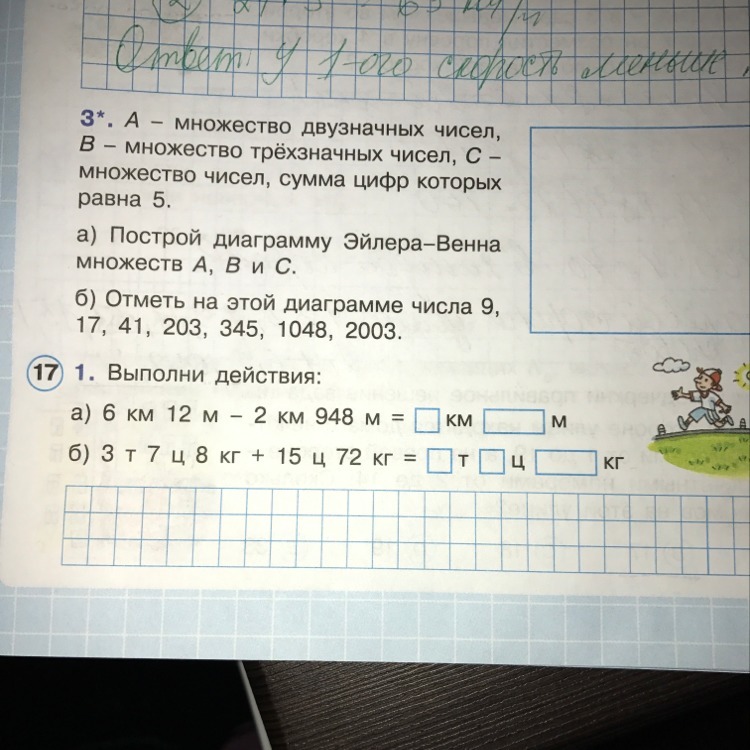 Ответ: у 1-ого скорость меньше.
3*. А – множество двузначных чисел,
В – множество трёхзначных чисел, С –
множество чисел, сумма цифр которых
равна 5.
а) Построй диаграмму Эйлера–Венна
множеств А, В и С.
б) Отметь на этой диаграмме числа 9,
17, 41, 203, 345, 1048, 2003.
17 1. Выполни действия:
а) 6 км 12 м – 2 км 948 м = км м
б) 3 т 7 ц 8 кг + 15 ц 72 кг = т ц кг